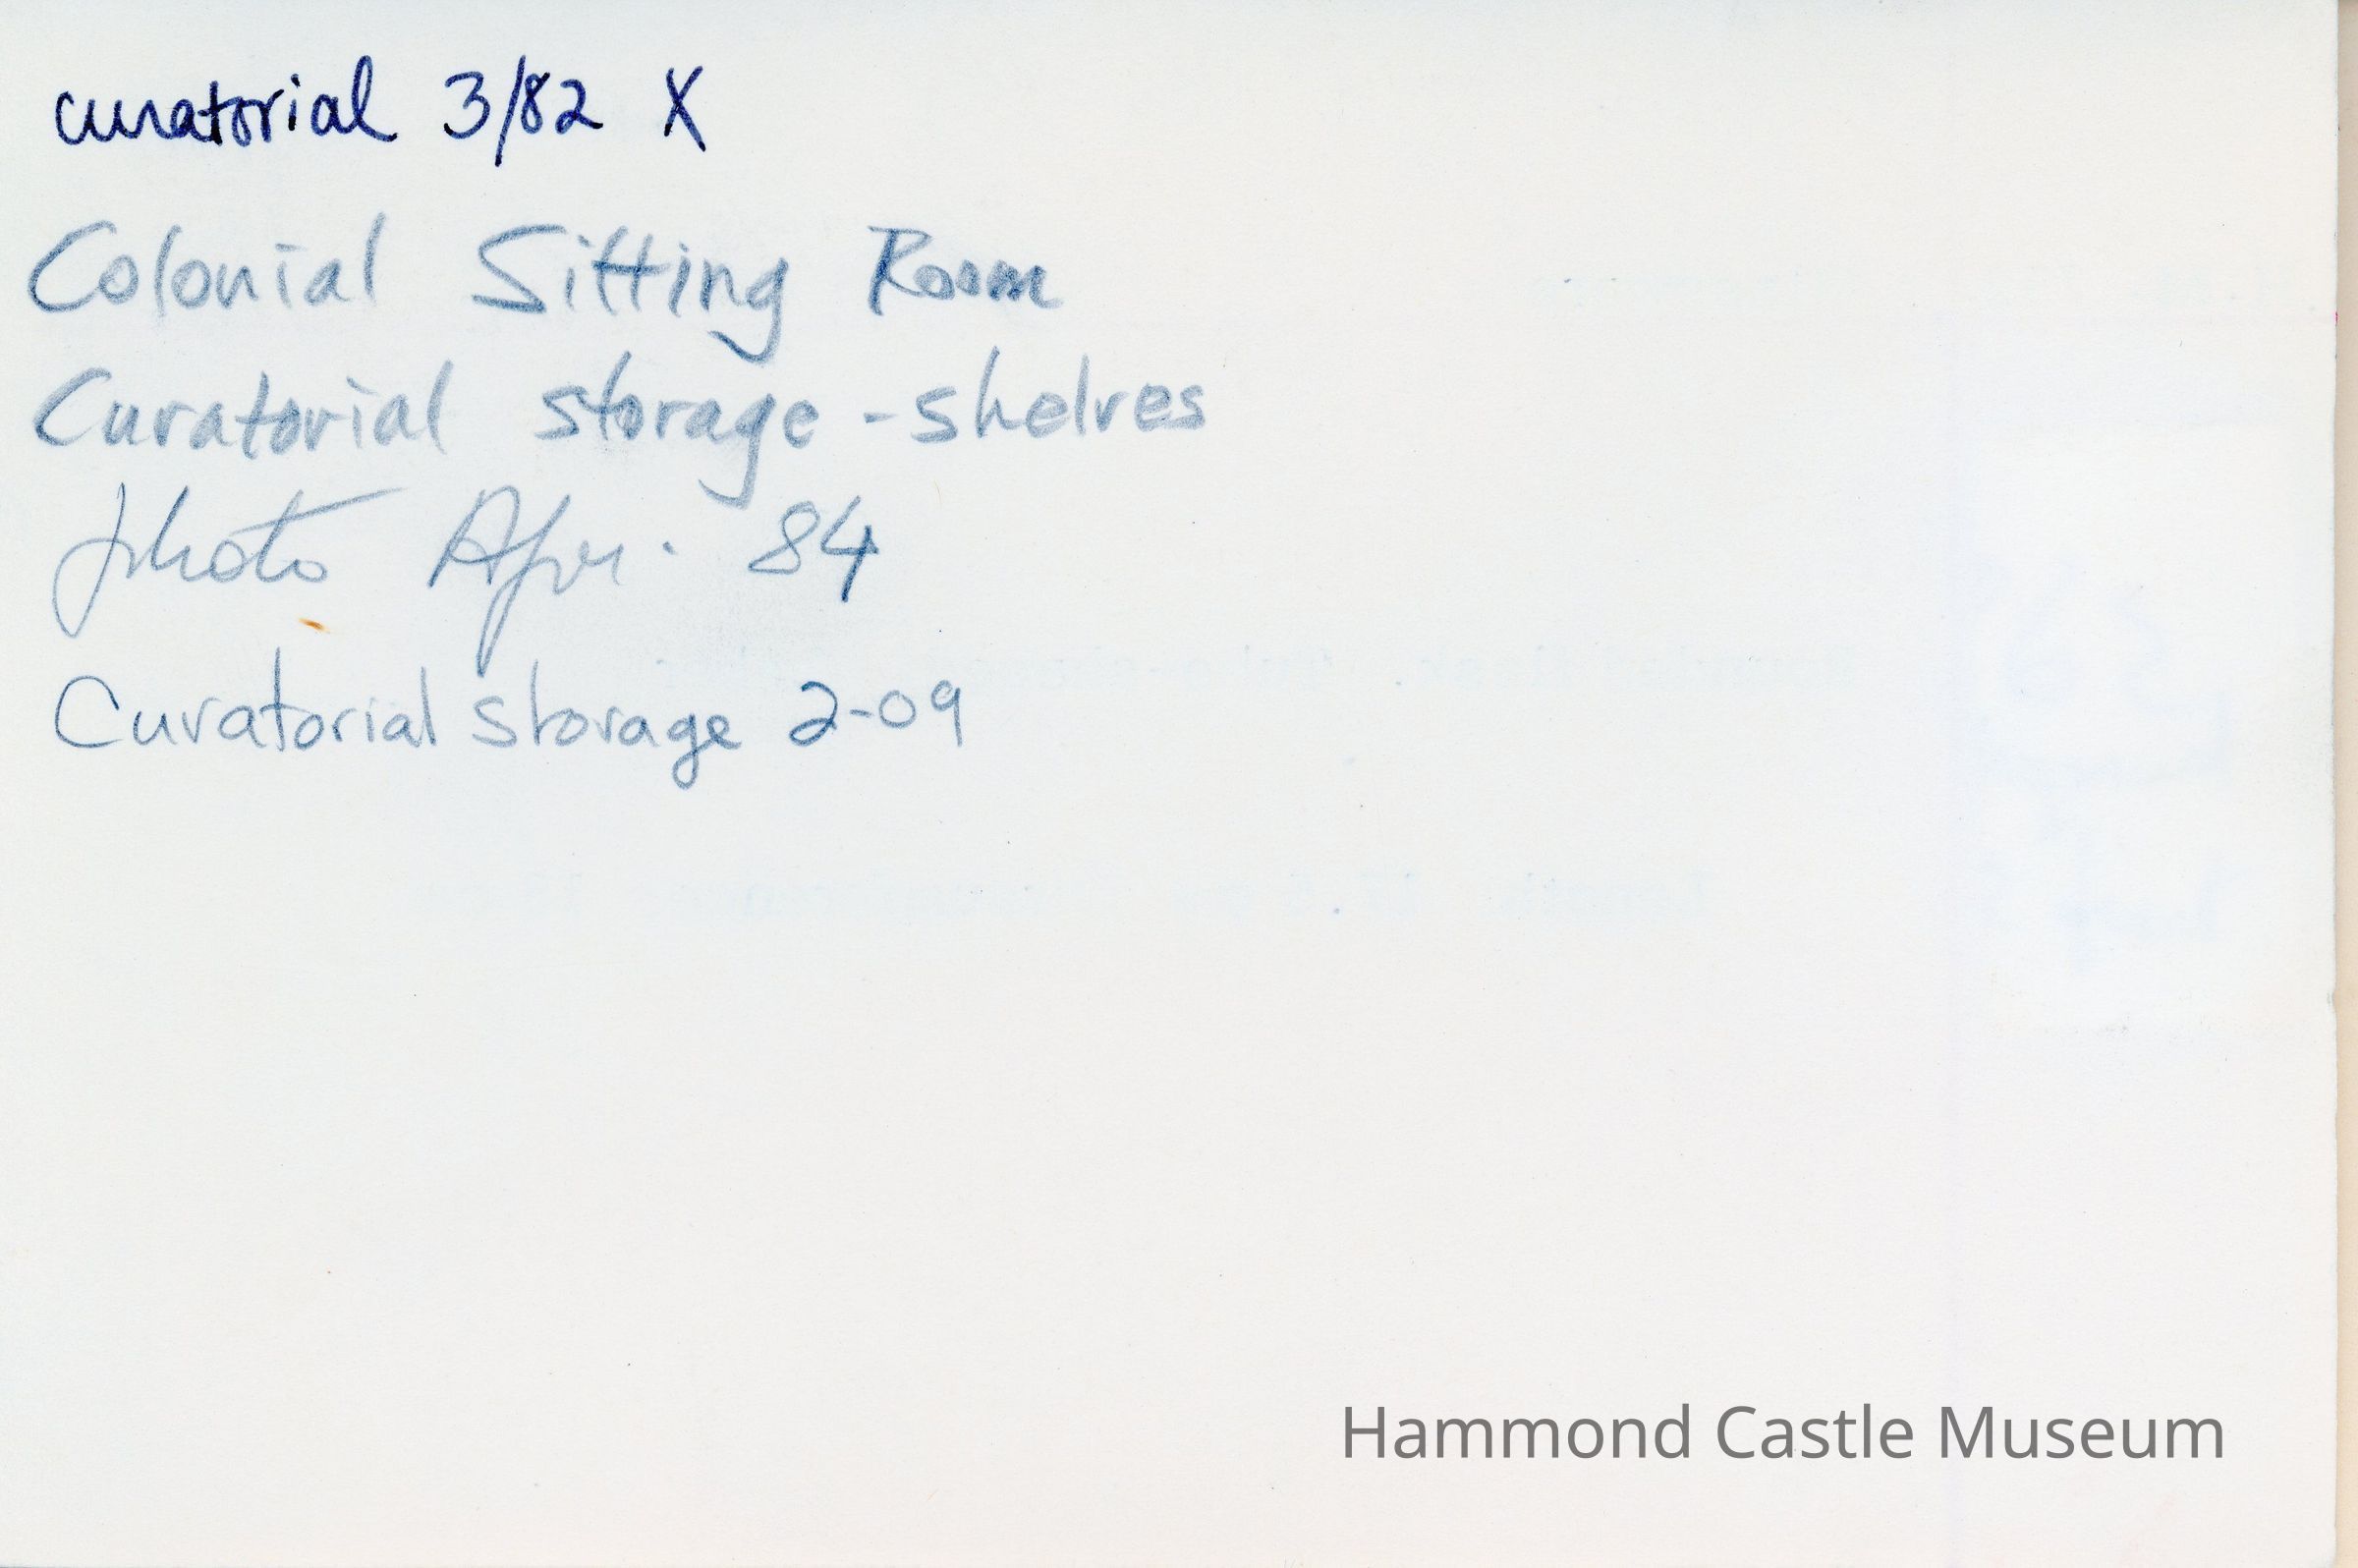 curatorial 3/82 X
Colonial Sitting Room
Curatorial storage - shelves
photo Apr. 84
Curatorial storage 2-09
Hammond Castle Museum